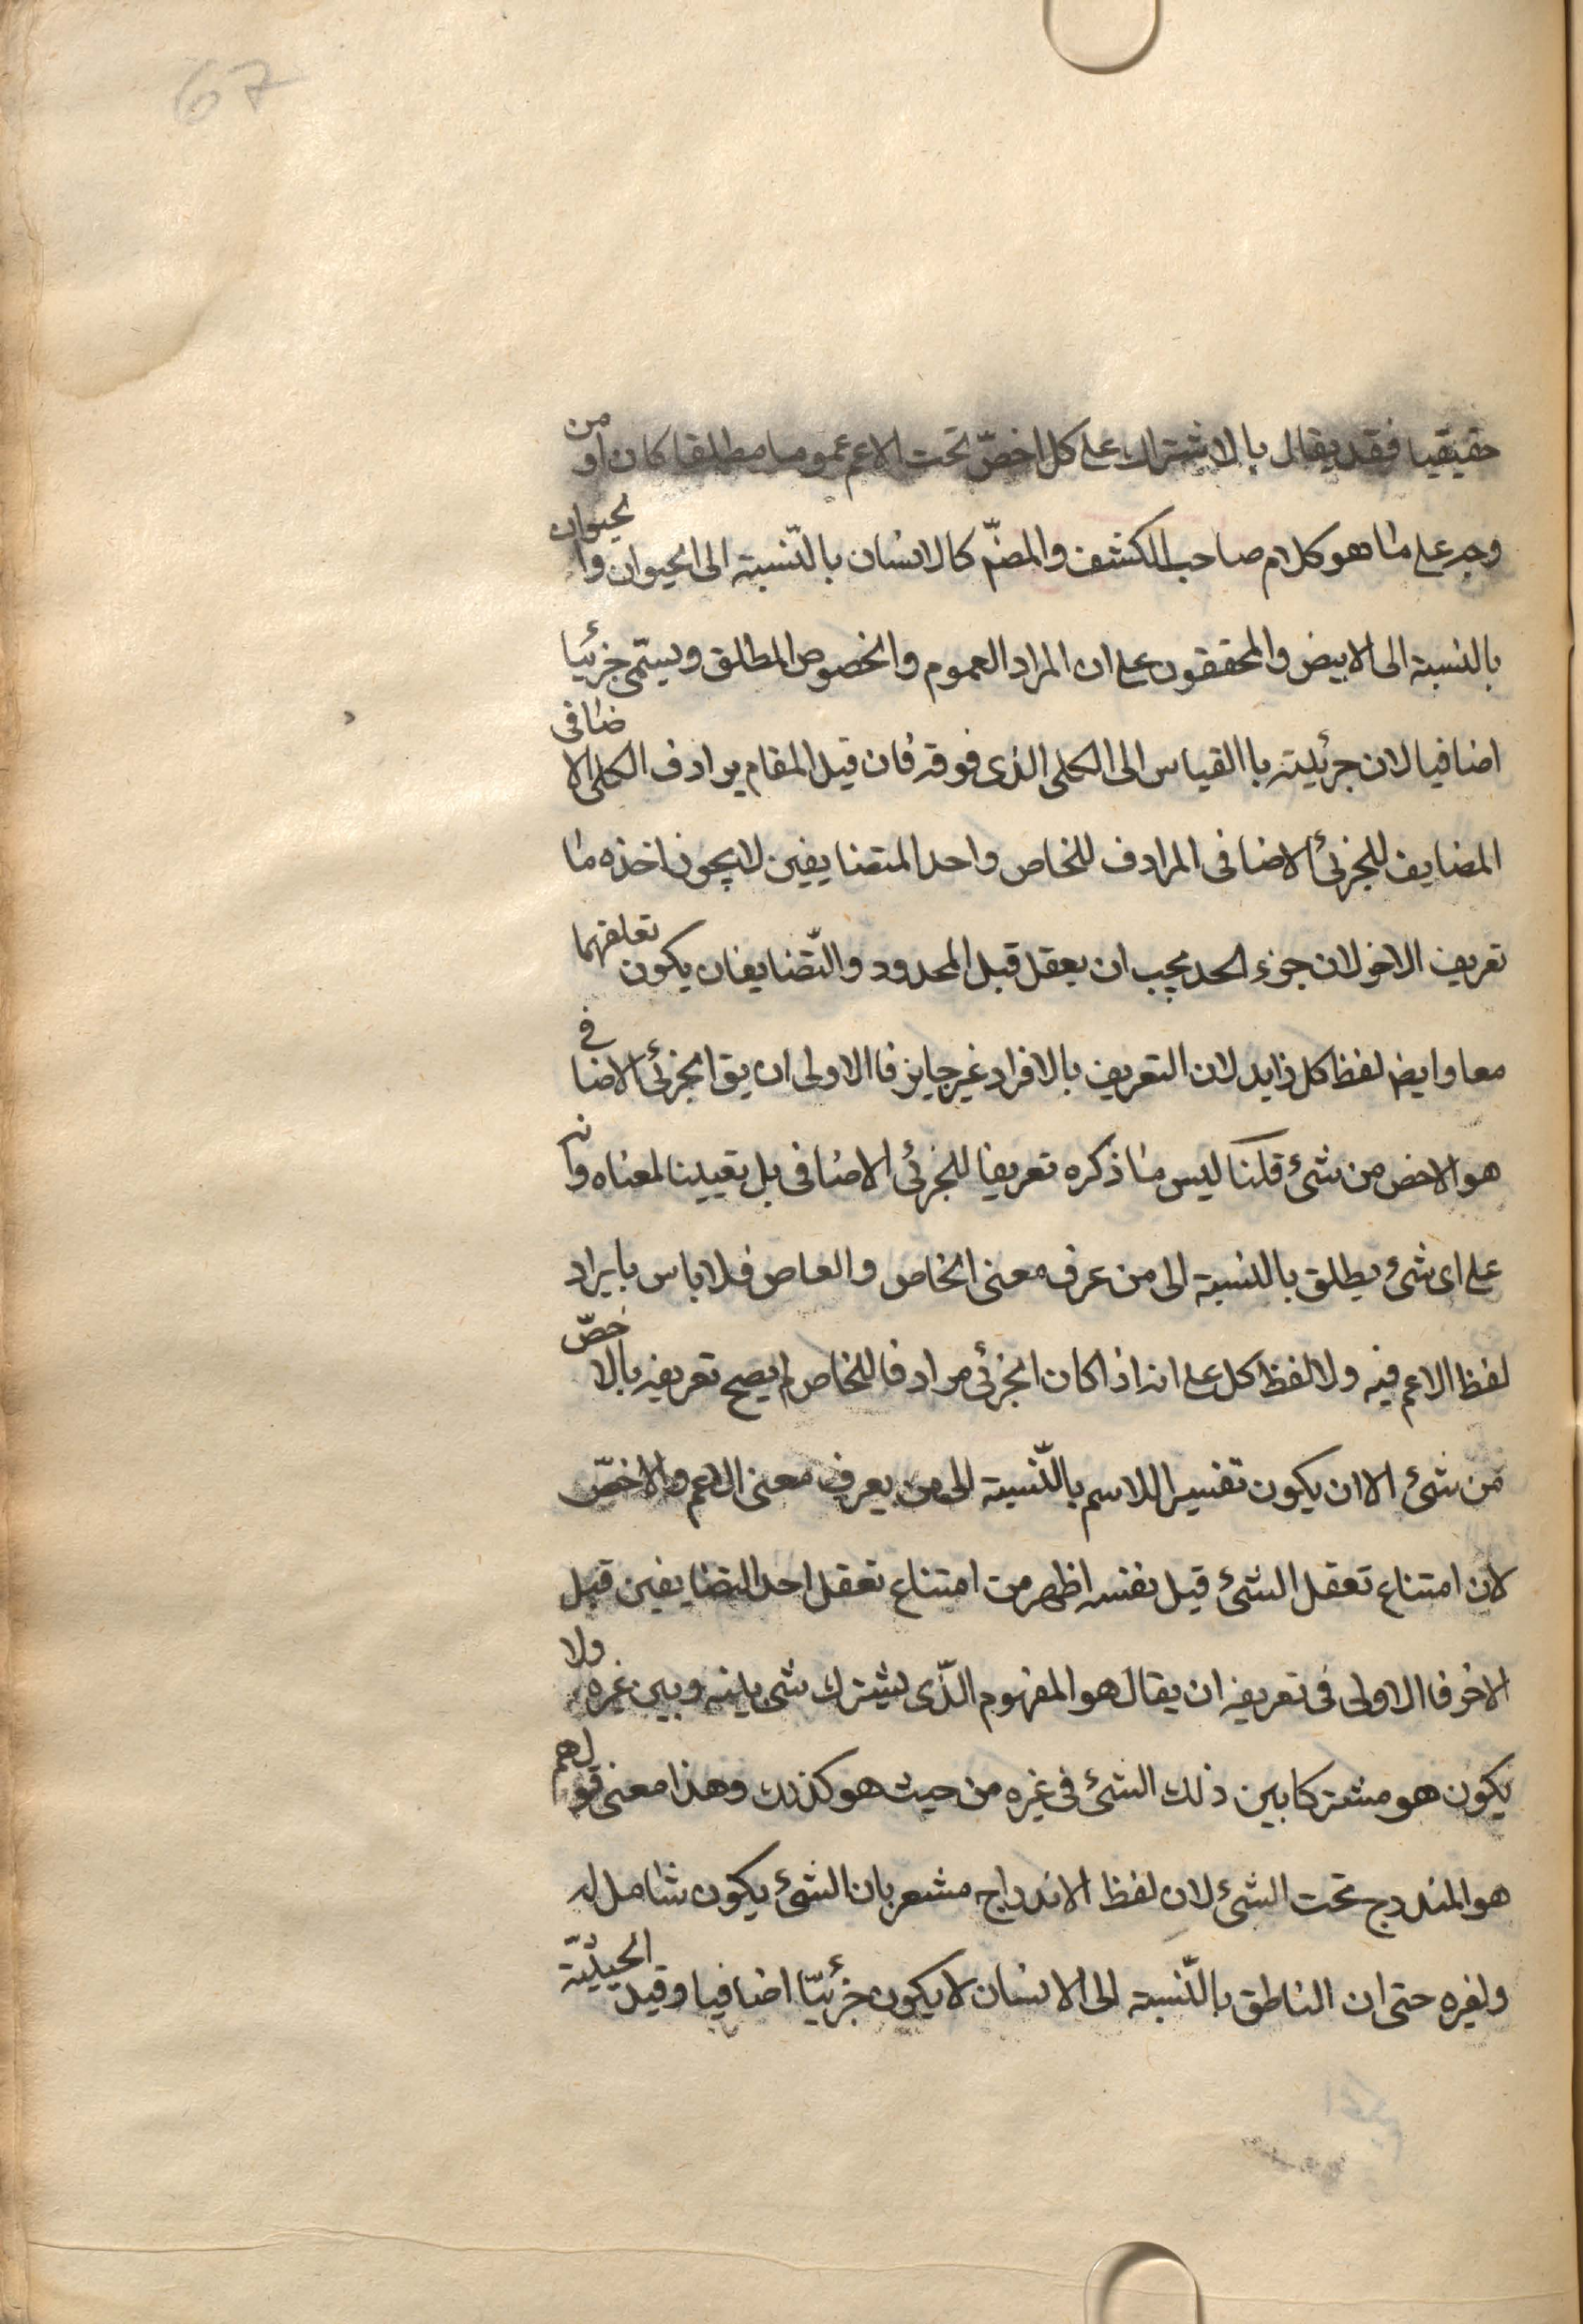 67
حقيقيا فقد يقال بالاشتراك على كل اخصّ تحت الاعم عموما مطلقا كان او من
وجه على ما هو كلام صاحب الكشف والمصنّ كالانسان بالنّسبة الى الحيوان والحيوان
بالنسبة الى الابيض والمحققون على ان المراد العموم والخصوص المطلق ويسمّى جزئيا
اضافيا لان جزئيته باالقياس الى الكلى الذى فوقه فان قيل المقام يرادف الكلى الاضافى
المضايف للجزئى الاضافى المرادف للخاص واحد المتضايفين لا يجوز اخذه ما
تعريف الاخر لان جزء الحد يجب ان يعقل قبل المحدود والتّضايفان يكون تعلقهما
معا وايض لفظ كل زايد لان التعريف بالافراد غير جايز فاالاولى ان يق الجزئى الاضافى
هو الاخص من شئ قلنا ليس ما ذكره تعريفا للجزئى الاضافى بل تعيينا لمعناه وانه
على اى شئ يطلق بالنسبة الى من عرف معنى الخاص والعاص فلا باس بايراد
لفظ الاعم فيه ولا لفظ كل على انه اذا كان الجزئى مرادفا للخاص لم يصح تعريفه بالاخصّ
من شئ الا ان يكون تفسيرا للاسم بالنّسبة الى من يعرف معنى الاعم والاخصّ
لان امتناع تعقل الشئ قبل نفسه اظهر من امتناع تعقل احد التضايفين قبل
الاخر فاالاولى فى تعريفه ان يقال هو المفهوم الذّى يشترك شى بينه وبين غيره ولا
يكون هو مشتركا بين ذلك الشئ فى غيره من حيث هو كذلك وهذا معنى قولهم
هو المندرج تحت الشئ لان لفظ الاندراج مشعر بان الشئ يكون شامل له
ولغيره حتى ان الناطق بالنّسبة الى الانسان لا يكون جزئيّا اضافيا وقيد الحيثيّة